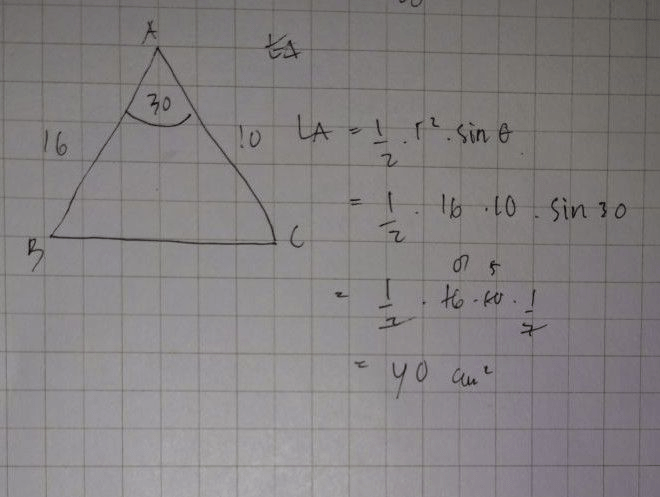 A
30
16
10
B
C
LA = 1/2 · r² · sin θ
= 1/2 · 16 · 10 · sin 30
8 5
= 1/2 · 16 · 10 · 1/2
= 40 cm²